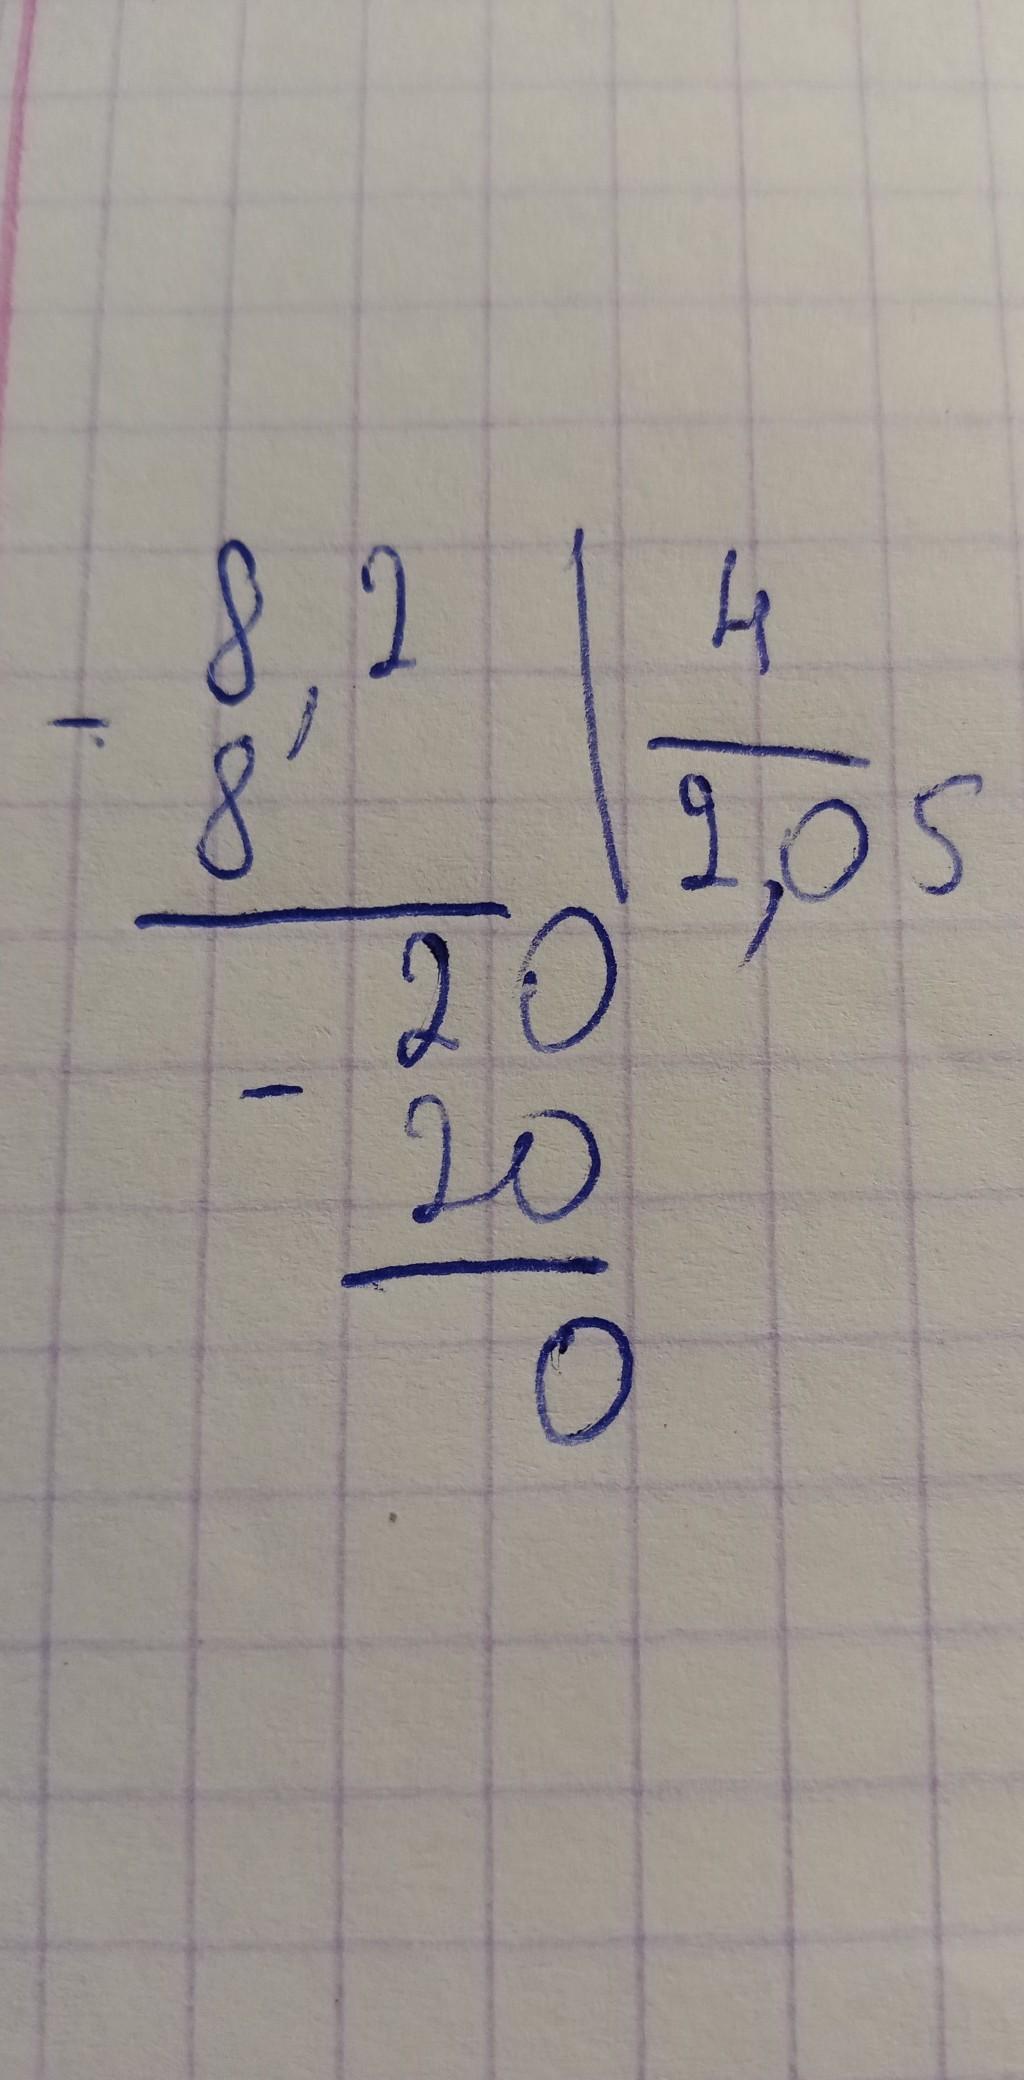 8,2 | 4
- 8
2,05
20
- 20
0